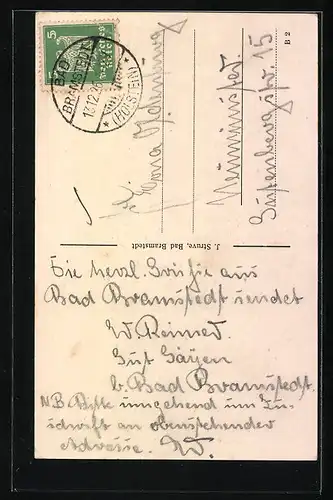 5
5
BAD
BRAMSTEDT
13.12.26
* (HOLSTEIN) *
Deutsches
Reich
B 2
Neumünster.
J. Struve, Bad Bramstedt
Die herzl. Grüße aus
Bad Bramstedt sendet
W Reimer.
Gut Gayen
b. Bad Bramstedt.
NB Bitte umgehend um Zu-
schrift an obenstehender
Adresse. W.